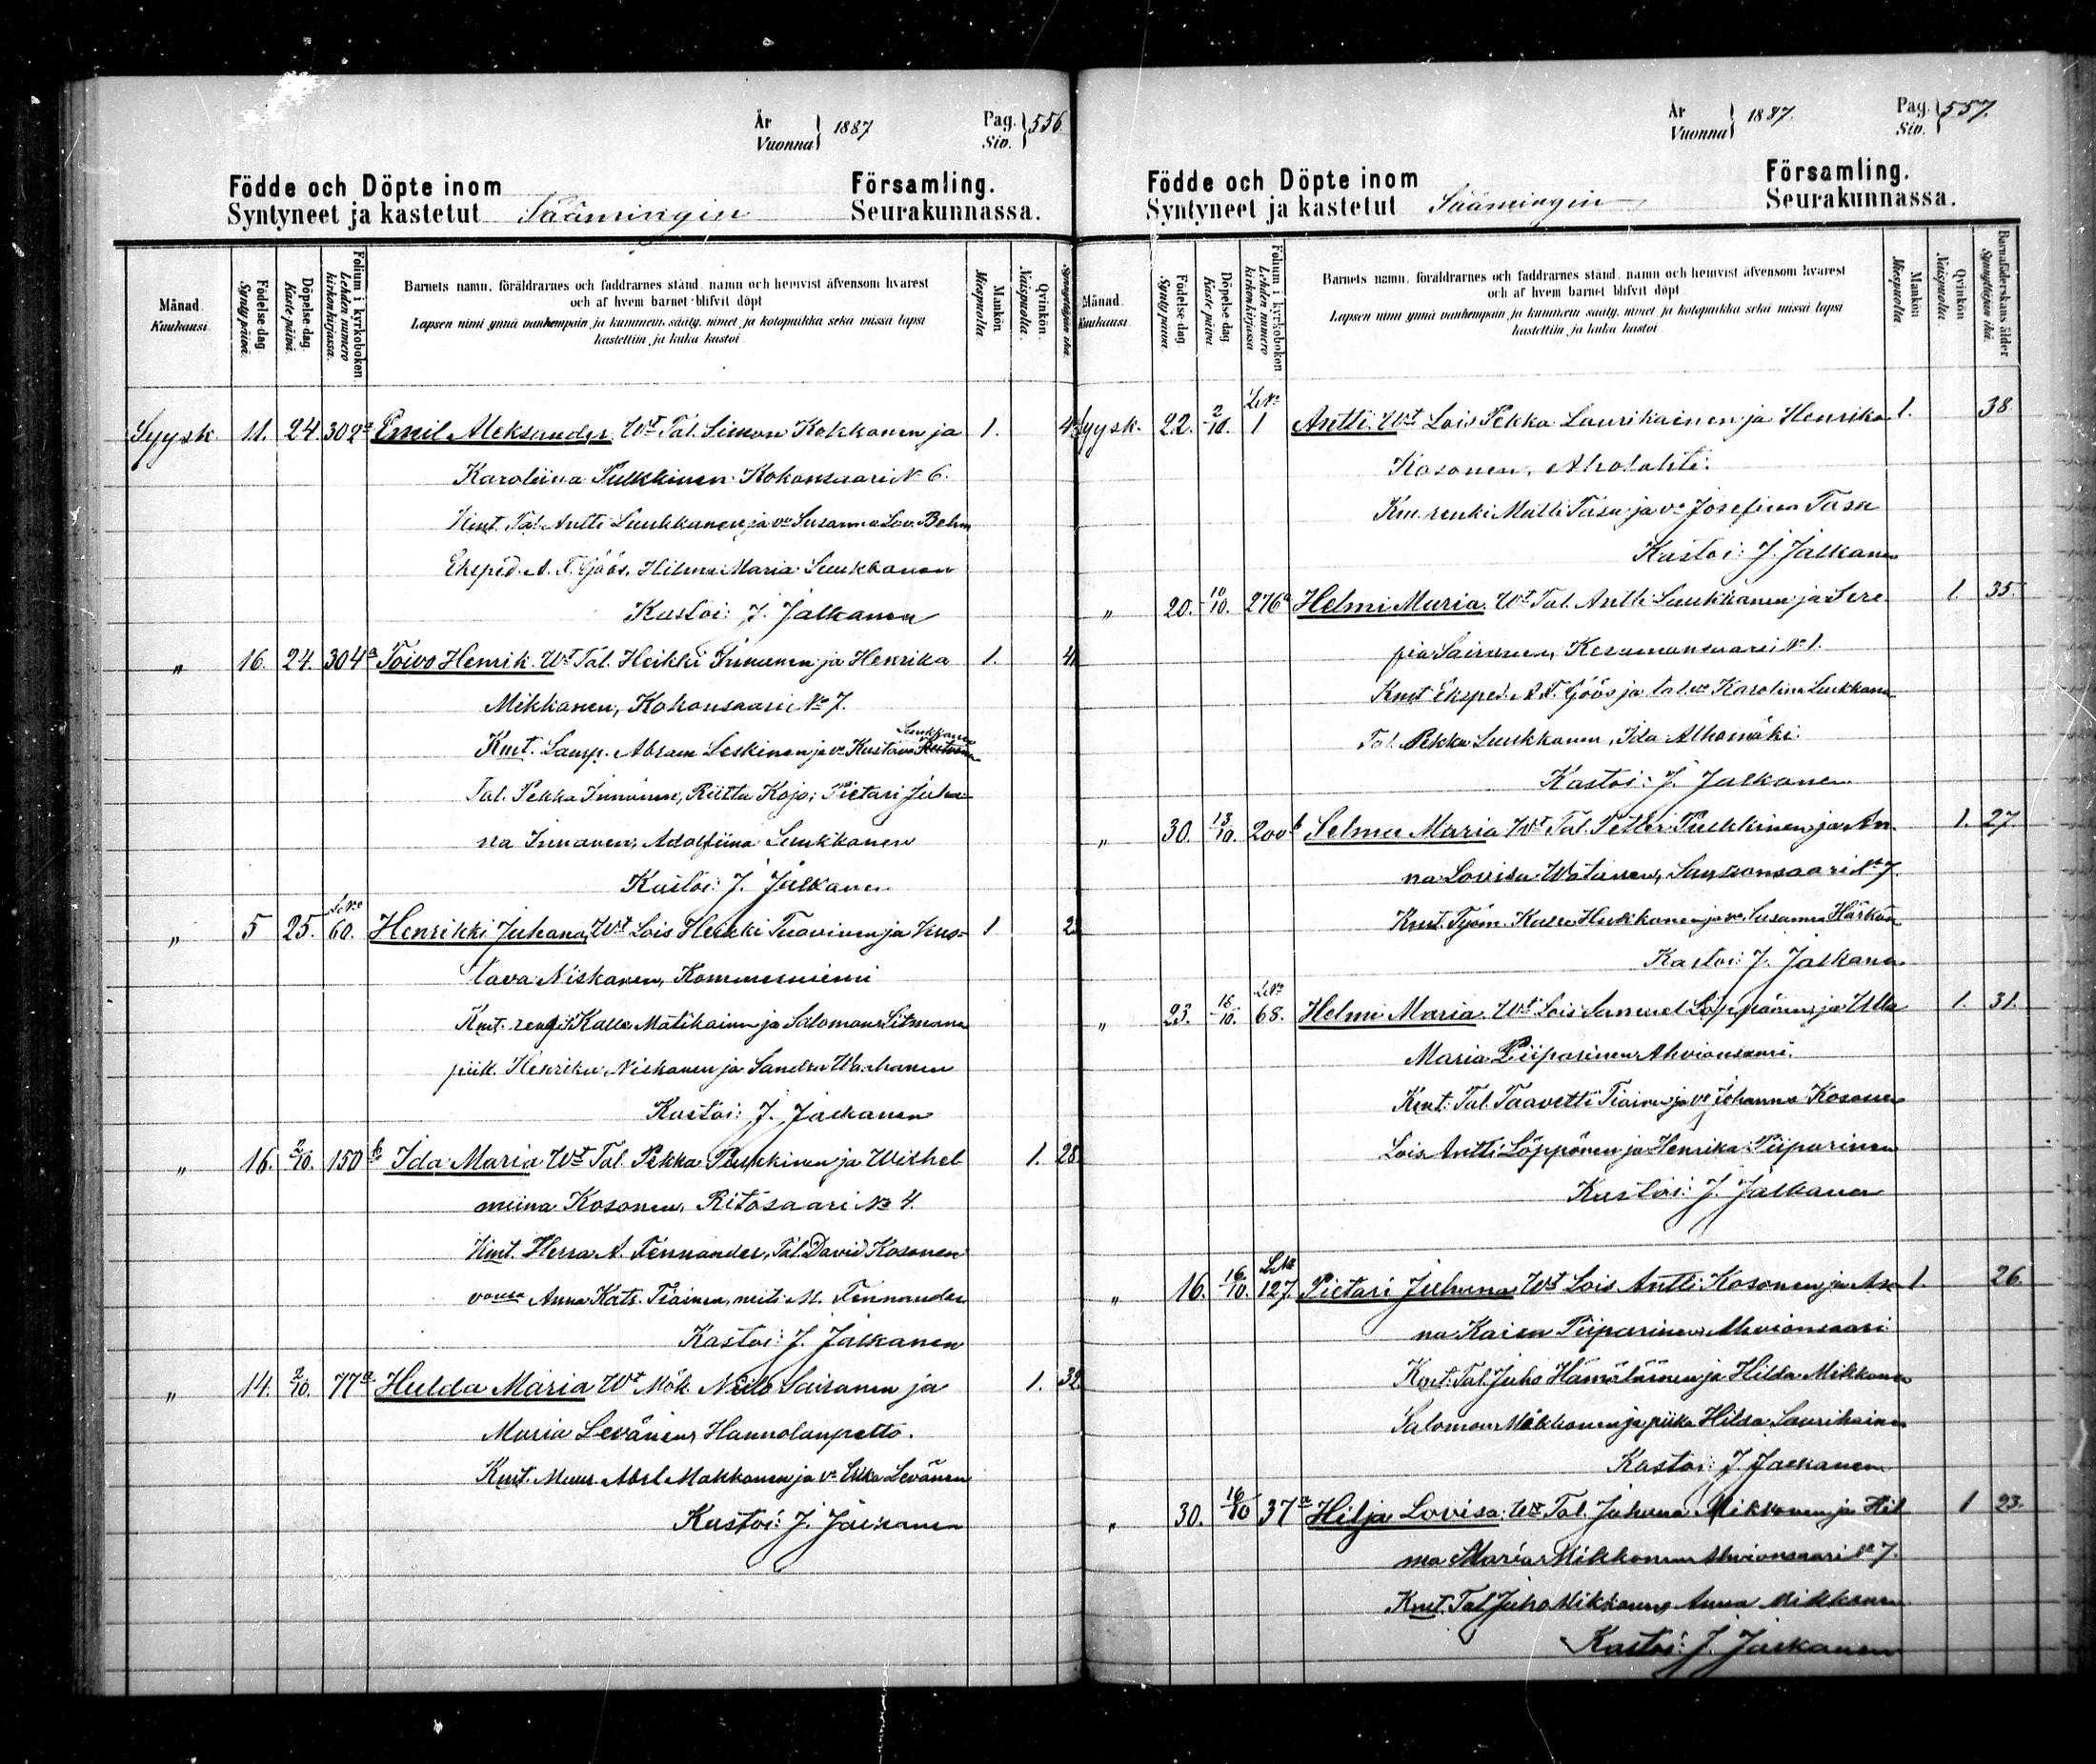 År
Vuonna } 1887
Pag.
Siv. } 556
Födde och Döpte inom Församling.
Syntyneet ja kastetut Säämingin Seurakunnassa.
Månad.
Kuukausi.
Födelse-dag.
Synty-päivä.
Döpelse-dag.
Kaste-päivä.
Folium i kyrkoboken.
Lehden numero
kirkonkirjassa.
Barnets namn, föräldrarnes och faddrarnes stånd, namn och hemvist äfvensom hvarest
och af hvem barnet blifvit döpt
Lapsen nimi ynnä vanhempain ja kummein sääty, nimet ja kotopaikka sekä missä lapsi
kastettiin ja kuka kastoi
Mankön.
Miespuolia.
Qvinkön.
Naispuolia.
Synnyttäjän ikä.
Syysk. 11. 24. 302a Emil Aleksander. Wt Tal. Simon Kokkonen ja 1.
Karoliina Pulkkinen Kokonsaari No 6.
Kmt. Tal. Antti Luukkanen ja vo Susanna Lov. Behm
Eksped. A. F. Göös, Hilma Maria Luukkanen
Kastoi: J. Jalkanen
" 16. 24. 304a Toivo Henrik. Wt Tal. Heikki Innanen ja Henrika 1.
Mikkonen, Kokonsaari No 7.
Luukkanen
Kmt. Lamp. Abram Leskinen ja vo Kustava
Tal. Pekka Innanen, Riitta Kojo; Pietari Juha
na Innanen, Adolfiina Luukkanen
Kastoi: J. Jalkanen
" 5 25. 60. Henrikki Juhana, Wt Lois Heikki Tuovinen ja Kus- 1
tava Niskanen, Kommerniemi
Kmt. renki Kalle Matikainen ja Saloman Litmanen
piik. Henrika Niskanen ja Sandra
Kastoi: J. Jalkanen
" 16. 2/10. 150b Ida Maria Wt Tal. Pekka Pulkkinen ja Wilhel 1. 28
miina Kosonen, Ritosaari No 4.
Kmt. Herra A. Fennander, Tal. David Kosonen
vousa Anna Kats. Tiainen, neiti M. Fennander
Kastoi: J. Jalkanen
" 14. 2/10. 77a Hulda Maria Wt Mök. Niilo Sairanen ja 1. 32
Maria Levänen, Hannolanpelto.
Kmt. Muur. Abel Makkonen ja vo Ulla Levänen
Kastoi: J. Jalkanen
År
Vuonna } 1887.
Pag.
Siv. } 557.
Födde och Döpte inom Församling.
Syntyneet ja kastetut Säämingin Seurakunnassa.
Månad.
Kuukausi.
Födelse-dag.
Synty-päivä.
Döpelse-dag.
Kaste-päivä
Folium i kyrkoboken
Lehden numero
kirkonkirjassa
Barnets namn, föräldrarnes och faddrarnes stånd, namn och hemvist äfvensom hvarest
och af hvem barnet blifvit döpt
Lapsen nimi ynnä vanhempain ja kummein sääty, nimet ja kotopaikka sekä missä lapsi
kastettiin ja kuka kastoi
Mankön
Miespuolia.
Qvinkön
Naispuolia.
Barnaföderskans ålder
Synnyttäjän ikä.
Syysk. 22. 2/10. 1 Antti. Wt Lois Pekka Laurikainen ja Henrika 1. 38
Kosonen, Aholahti.
Km. renki Matti Tasa ja vo Josefina Tasa
Kastoi: J. Jalkanen
" 20. 10/10. 276a Helmi Maria. Wt Tal. Antti Luukkanen ja Sere- 1. 35.
fia Sairanen, Kesamonsaari No 1.
Kmt Eksped. A. F. Göös ja tal. vo Karolina Luukkanen
Tal. Pekka Luukkanen, Ida Alhomäki.
Kastoi: J. Jalkanen
" 30. 13/10. 200b Selma Maria Wt Tal. Petter Pulkkinen ja An- 1. 27.
na Lovisa Watanen, No 7.
Kmt. Työm. Kalle Hukkanen ja vo Susanna Härkön
Kastoi: J. Jalkanen
" 23. 16/10. 68. Helmi Maria. Wt Lois Samuel Löppönen ja Ulla 1. 31.
Maria Piiparinen Ahvionsaari.
Kmt. Tal. Taavetti Tiainen ja vo Johanna Kosonen
Lois Antti Löppönen ja Henrika Piiparinen
Kastoi: J. Jalkanen
" 16. 16/10. 127. Pietari Juhana Wt Lois Antti Kosonen ja An- 1. 26.
na Kaisa Piiparinen Ahvionsaari
Kmt. Tal. Juho Hämäläinen ja Hilda Mikkonen
Salomon Mikkonen ja piika Hilda Laurikainen
Kastoi: J. Jalkanen
" 30. 16/10 37a Hilja Lovisa. Wt Tal. Juhana Mikkonen ja Hil 1 23.
ma Maria Mikkonen Ahvionsaari No 7.
Kmt. Tal. Juho Mikkonen, Anna Mikkonen
Kastoi: J. Jalkanen